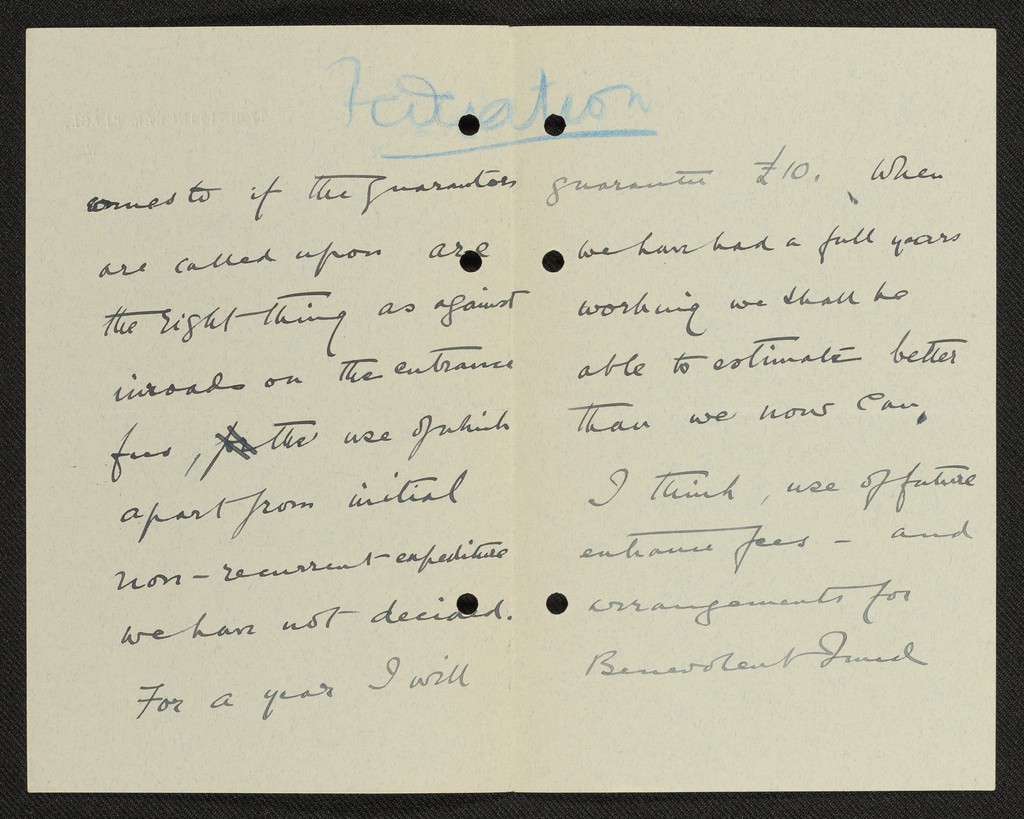 Federation
comes to if the guarantors
are called upon are
the right thing as against
inroads on the entrance
fees, the use of which
apart from initial
non-recurrent expediture
we have not decided.
For a year I will
guarantee £10. When
we have had a full years
working we shall be
able to estimate better
than we now can.
I think, use of future
entrance fees - and
arrangements for
Benevolent Fund